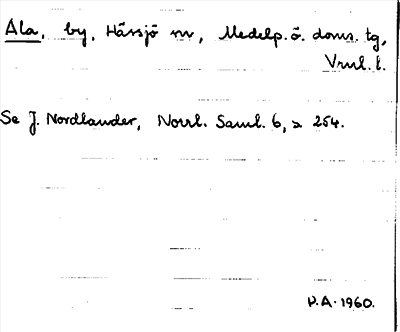 Ala, by, Hässjö sn, Medelp. ö. doms. tg,
Vrnl. l.
Se J. Nordlander, Norrl. Saml. 6, s. 254.
P.A. 1960.